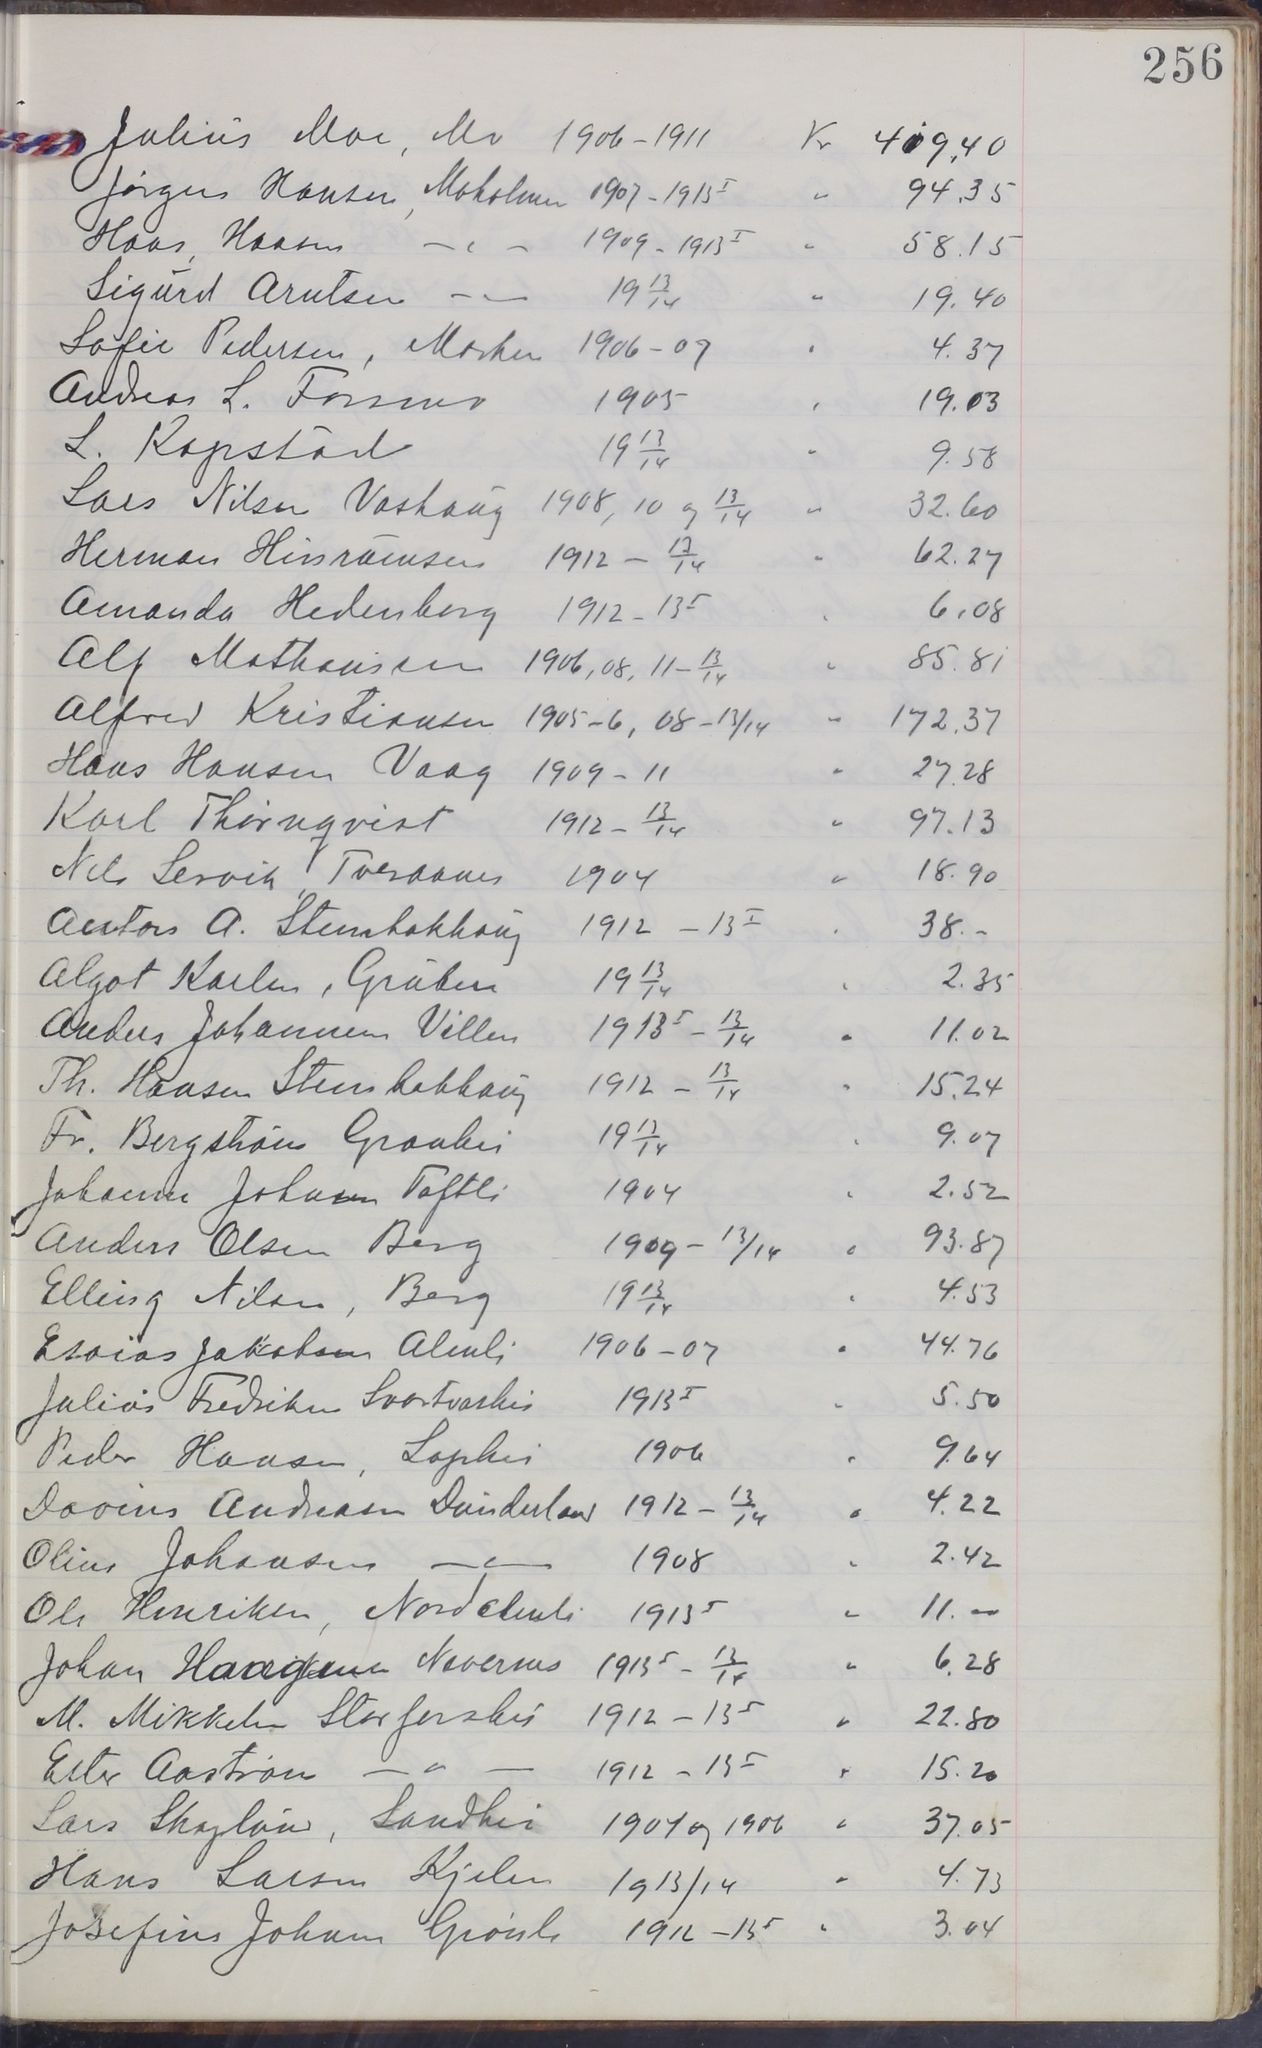 256
Julius Moe, Mo 1906-1911 Kr 409,40
Jørgen Hansen, Moholmen 1907-1913 I " 94.35
Hans Hansen -"- 1909-1913 I " 58.15
Sigurd Arntsen -"- 19 13/14 " 19.40
Sofie Pedersen, Marken 1906-07 " 4.37
Andreas L. Forsmo 1905 " 19.03
L. Kopstad 19 13/14 " 9.58
Lars Nilsen Vashaug 1908, 10 og 13/14 " 32.60
Herman 1912 - 13/14 " 62.27
Amanda Hedenberg 1912-13 I " 6,08
Alf Mathisen 1906, 08, 11-13/14 " 85.81
Alfred Kristiansen 1905-6, 08-13/14 " 172.37
Hans Hansen Vaag 1909-11 " 27.28
Karl Thörnqvist 1912-13/14 " 97.13
Nils Lervik, Tveraanes 1904 " 18.90
Anton A. Stenbakhaug 1912 - 13 I " 38.-
Algot Karlsen, Gruben 19 13/14 " 2.35
Anders Johannesen Villen 1913 I - 13/14 " 11.02
Th. Hansen Stenbakhaug 1912 - 13/14 " 15.24
Fr. Bergström Grønli 19 13/14 " 9.07
Johan Toftli 1904 " 2.52
Anders Olsen Berg 1909 - 13/14 " 93.87
Elling Nilsen, Berg 19 13/14 " 4.53
Esaias Jakobsen Almli 1906-07 " 44.76
Julius Fredriksen Svartvashei 1913 I " 5.50
Peder Hansen, 1906 " 9.64
Andreasen Dunderland 1912-13/14 " 4.22
Johansen -"- 1908 " 2.42
Ole Henriksen, Nord 1913 I " 11.-
Johan Haagensen Nævernes 1913 I - 13/14 " 6.28
M. Mikkelsen Storforshei 1912-13 I " 22.80
Ester Aaström -"- 1912-13 I " 15.20
Lars Skoglund, Sandhei 1904 og 1906 " 37.05
Hans Larsen 1913/14 " 4.73
Josefine Johans Grønli 1912-13 I " 3.04